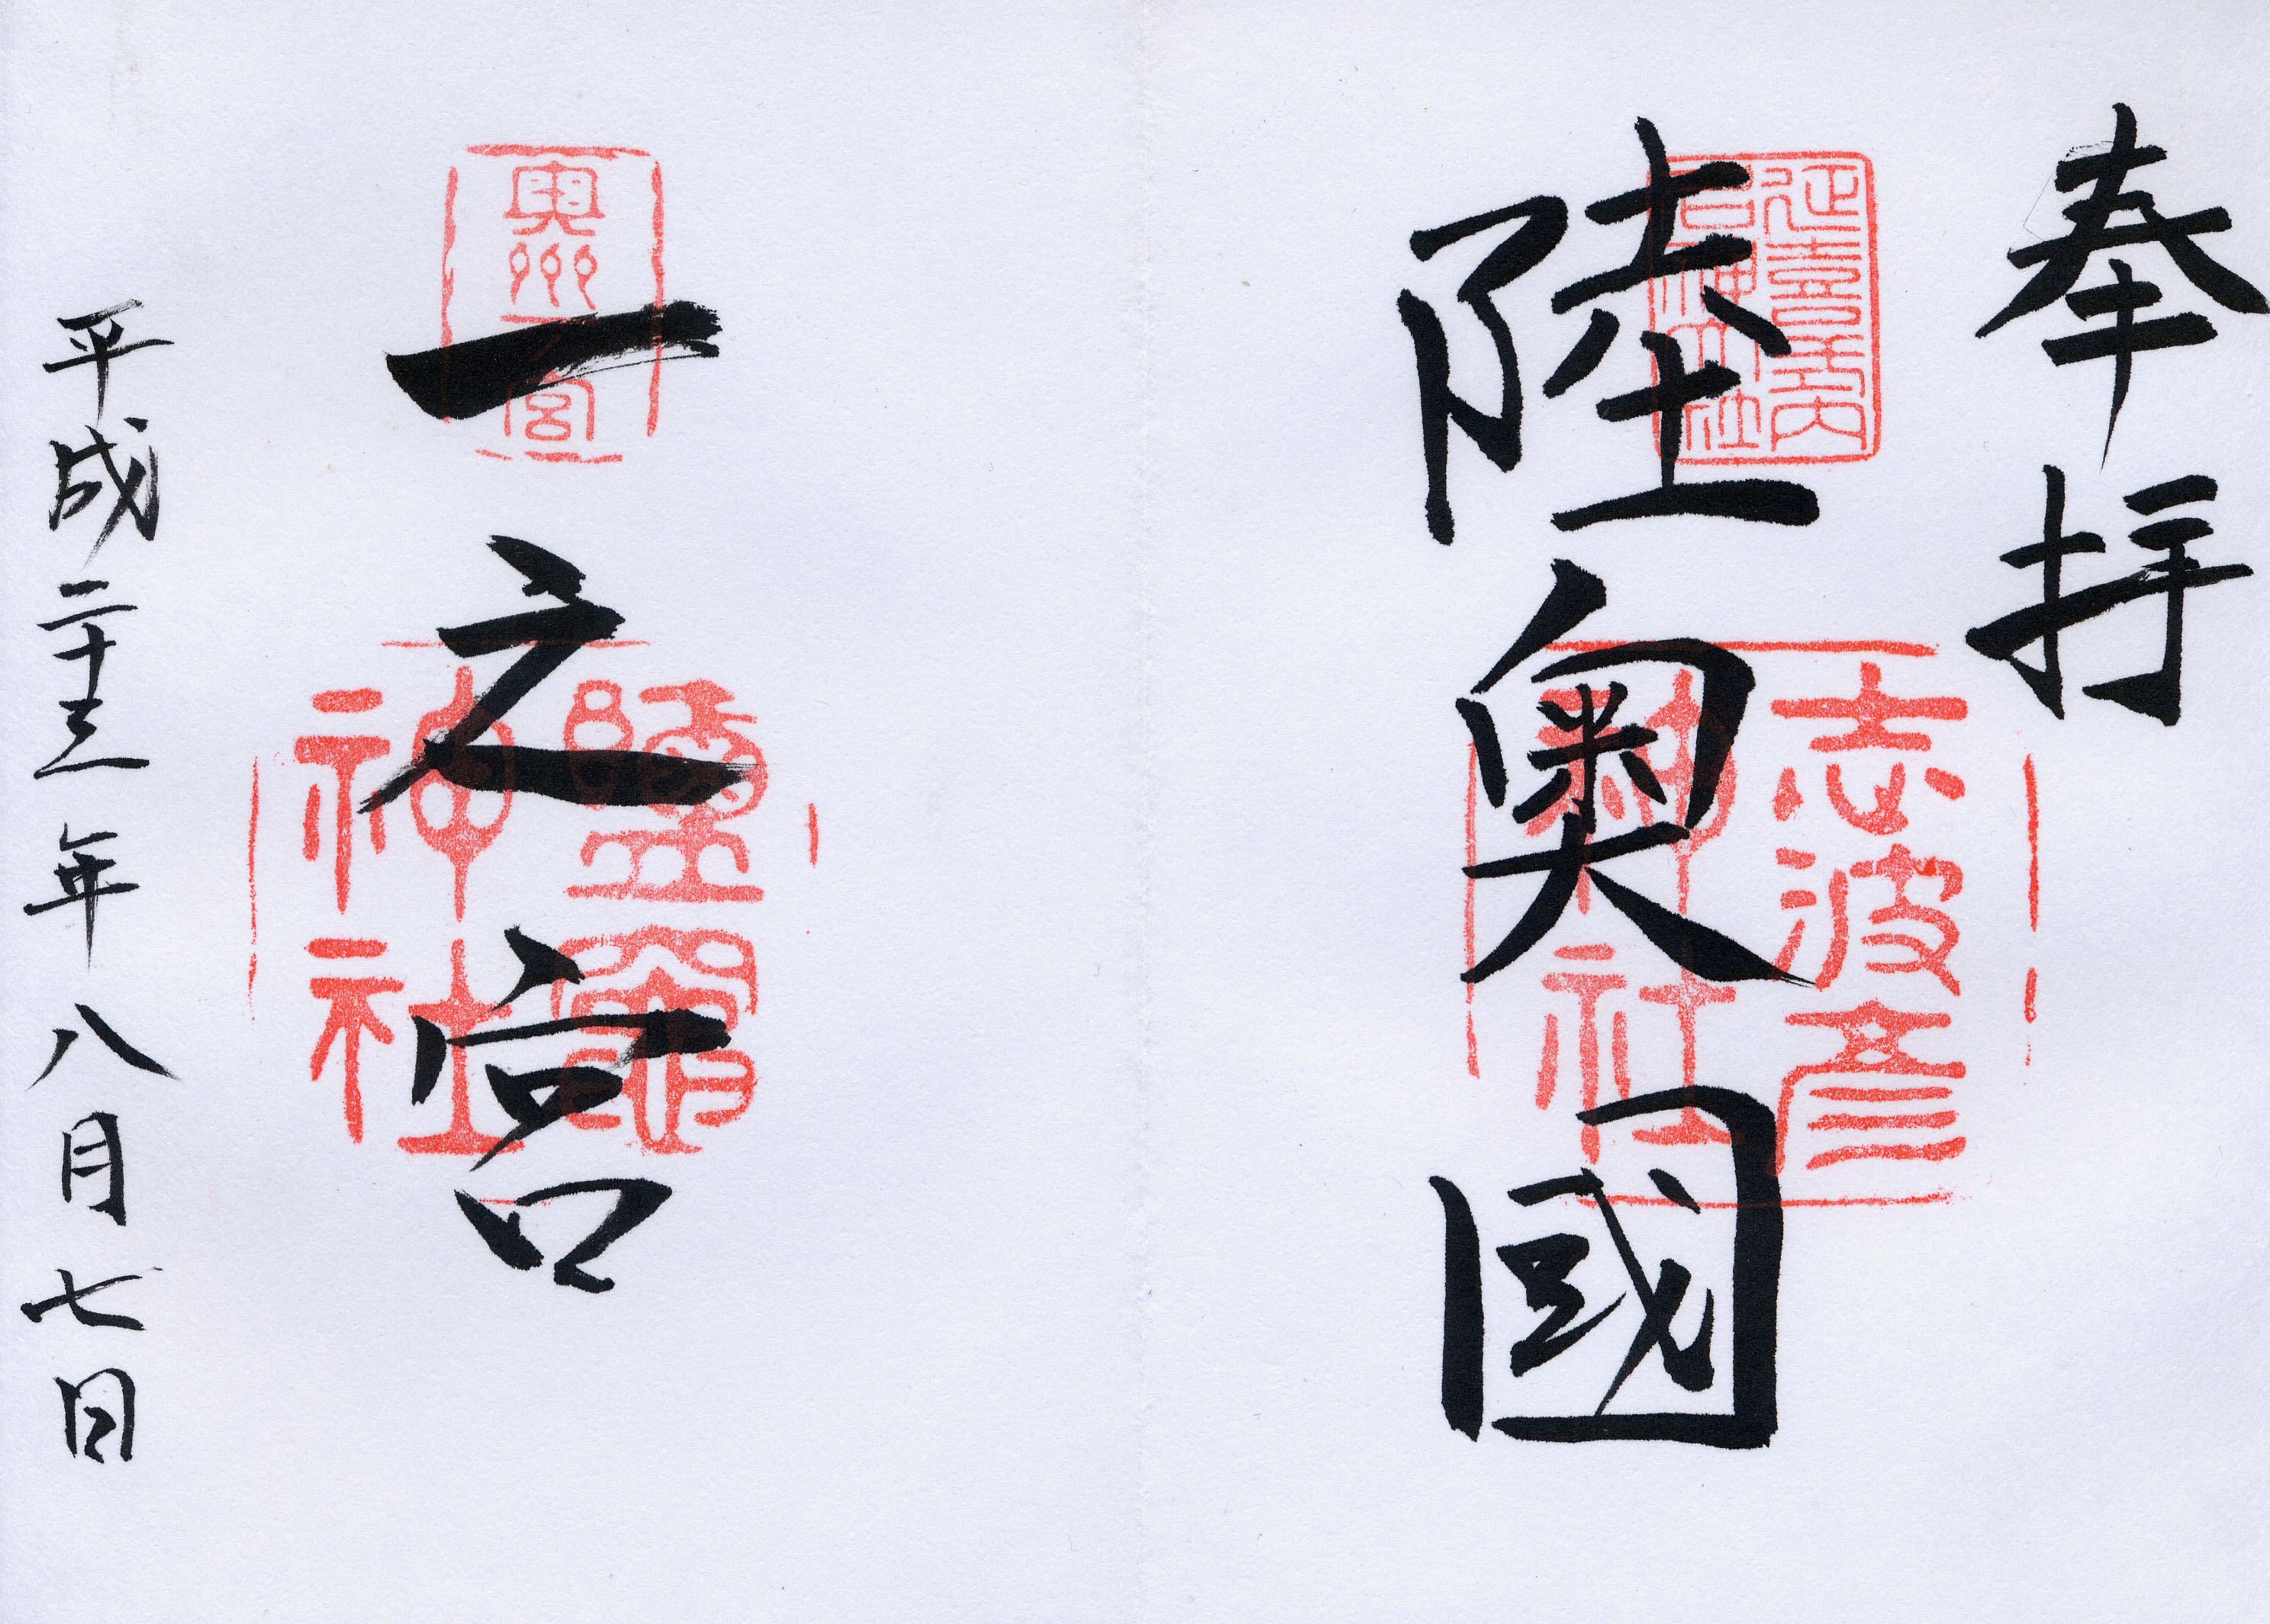 奉拝
延喜式内
名神大社
陸奥國
志波彦
神社
奥州一宮
一之宮
鹽竈
神社
平成二十三年八月七日